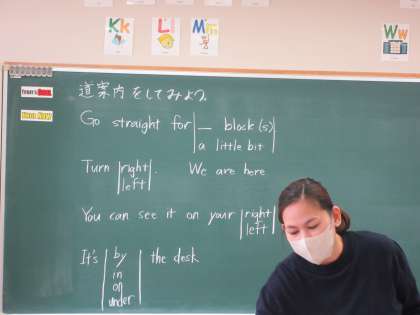 Kk
Ll
Mm
Ww
道案内をしてみよう
Go straight for | __ block(s) |
a little bit
Turn | right | . We are here
left
You can see it on your | right |
left
It's | by | the desk
in
on
under